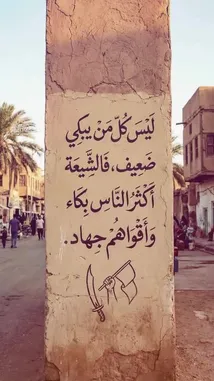 لَيْسَ كُلّ مَنْ يبكي
ضَعِيف، فَالشِّيعَة
أكثرُ النَّاسِ بِكَاء
وَأَقْوَاهُمْ جِهاد.